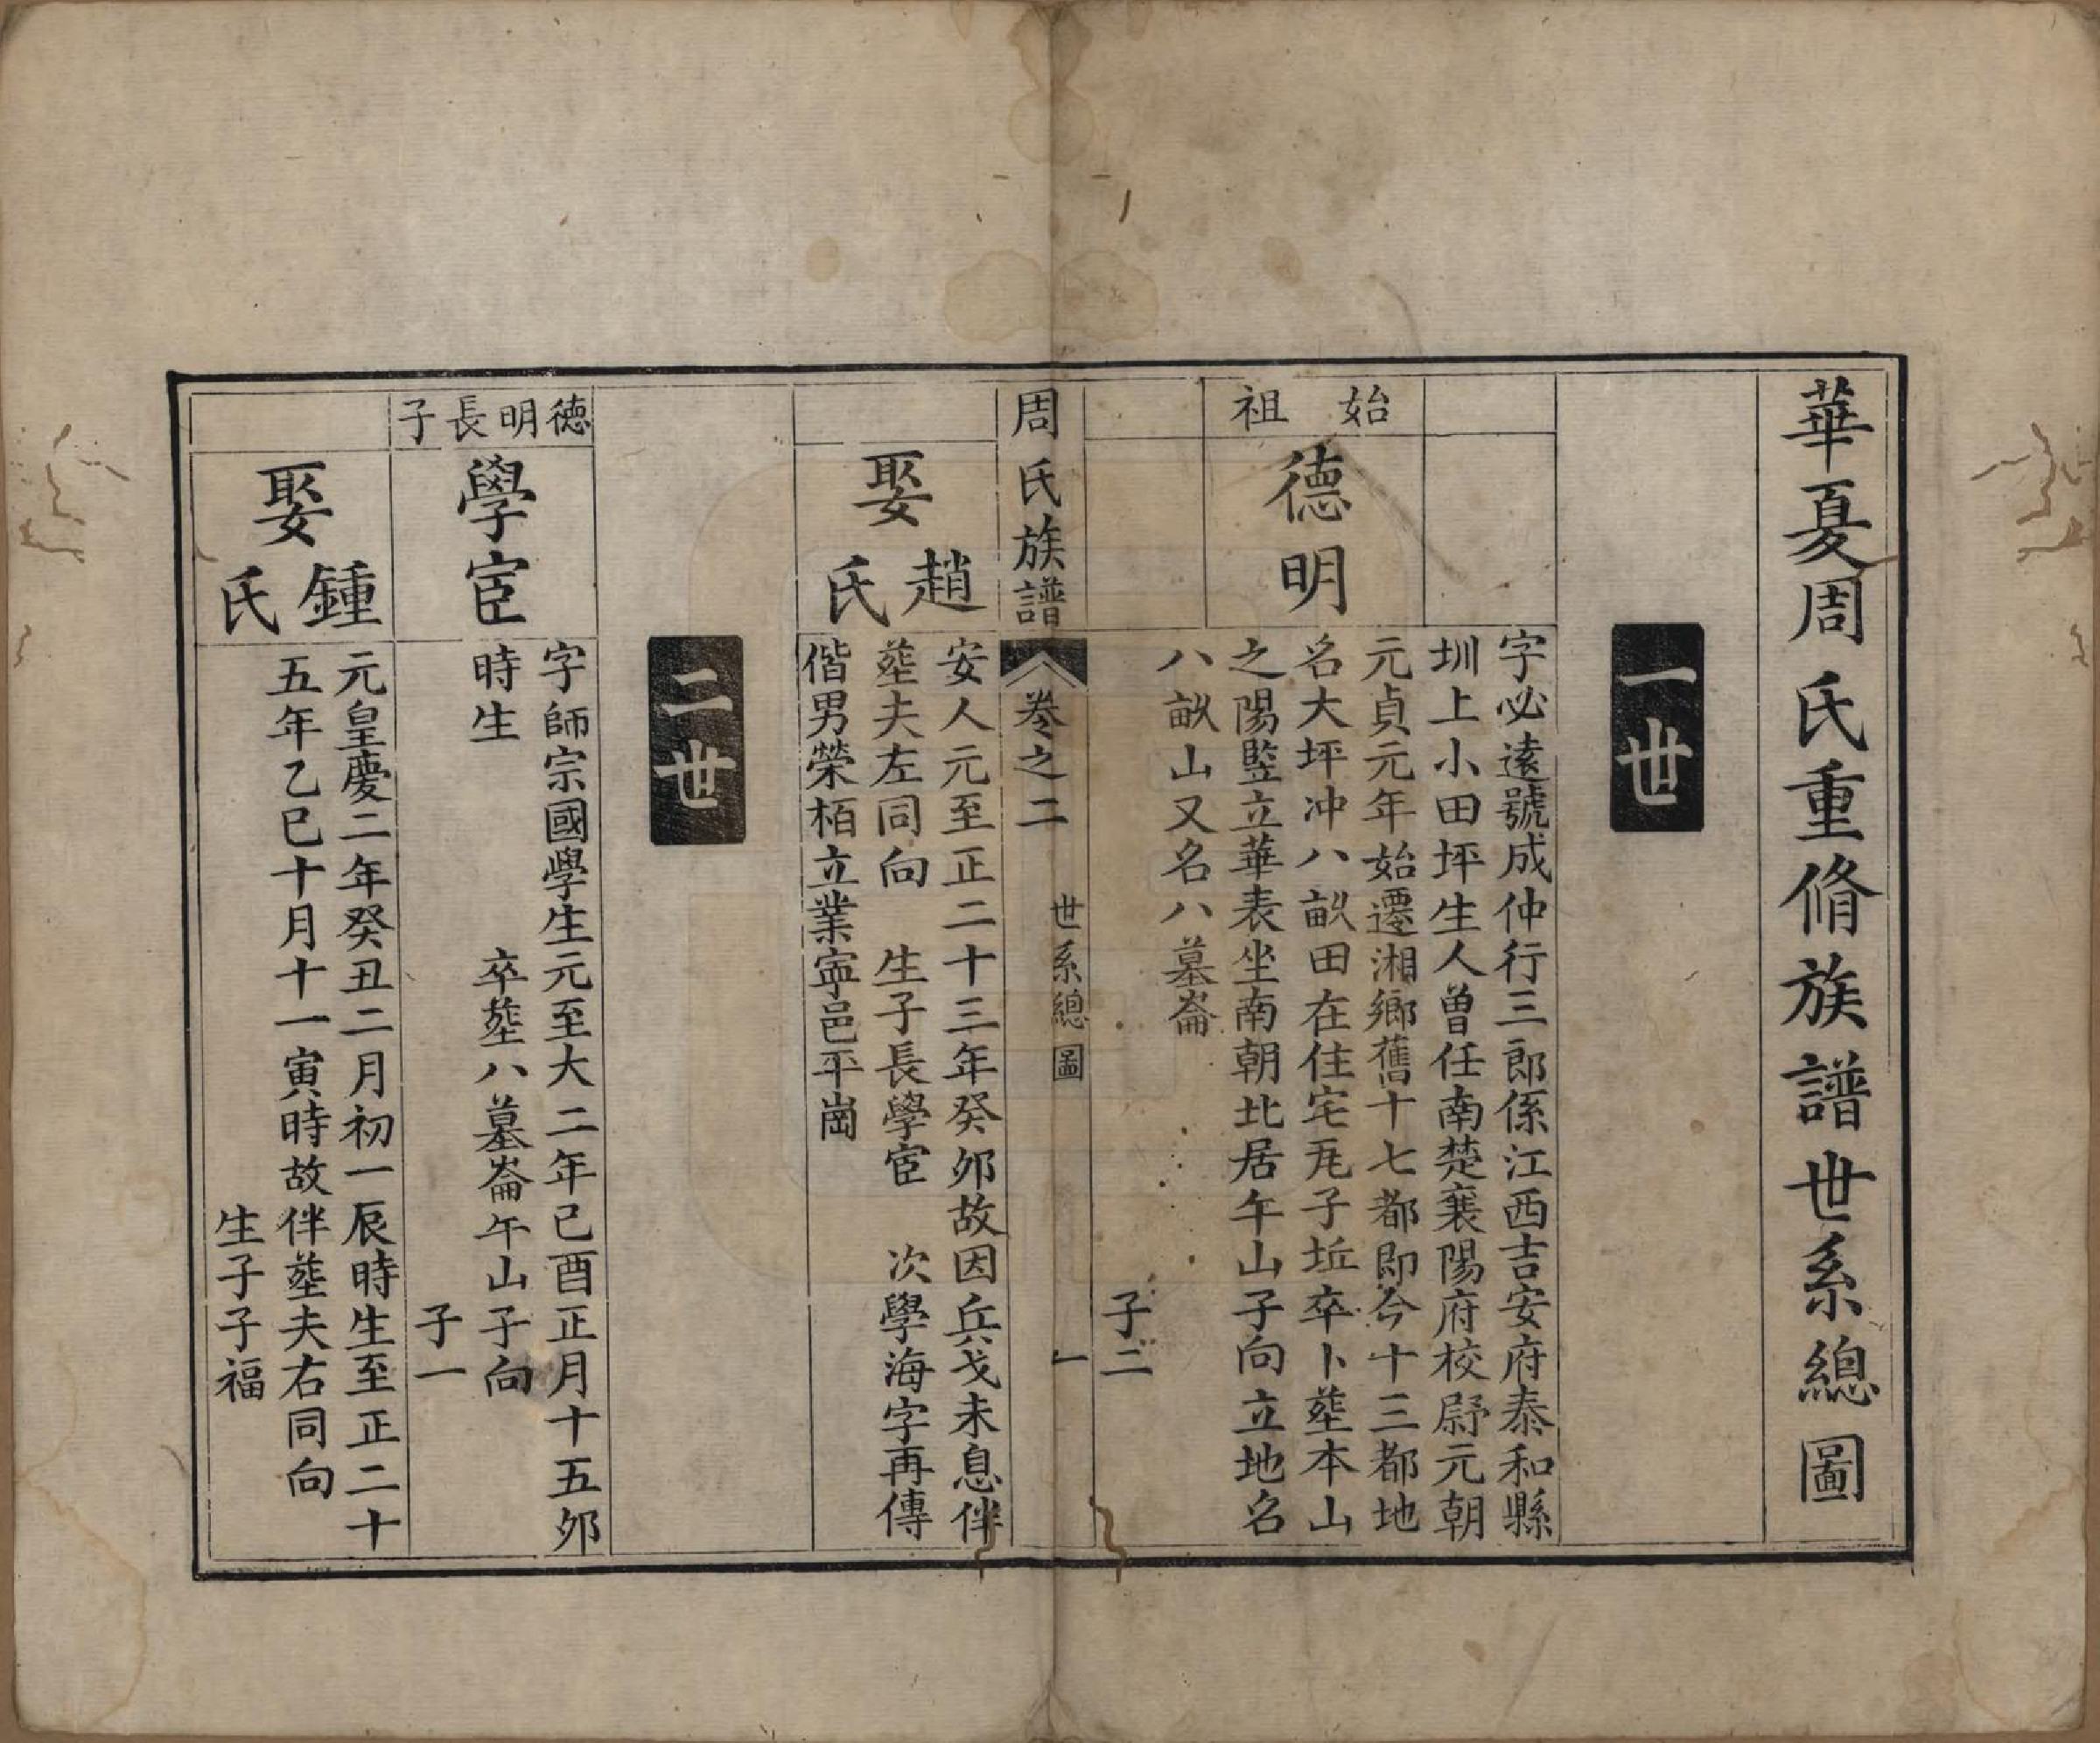 華夏周氏重脩族譜世系總圖
一世
始祖
德明
字必遠號成仲行三郎係江西吉安府泰和縣
圳上小田坪生人曾任南楚襄陽府校尉元朝
元貞元年始遷湘鄉舊十七都即今十三都地
名大坪冲八畝田在住宅兎子坵卒卜塟本山
之陽竪立華表坐南朝北居午山子向立地名
八畝山又名八墓崙
子二
周氏族譜
卷之二
世系總圖
一
娶趙氏
安人元至正二十三年癸夘故因兵戈未息伴
塟夫左同向　生子長學宦　次學海字再傳
偕男榮栢立業寕邑平崗
二世
德明長子
學宦
字師宗國學生元至大二年己酉正月十五夘
時生　　　　卒塟八墓崙午山子向
子一
娶鍾氏
元皇慶二年癸丑二月初一辰時生至正二十
五年乙巳十月十一寅時故伴塟夫右同向
生子子福